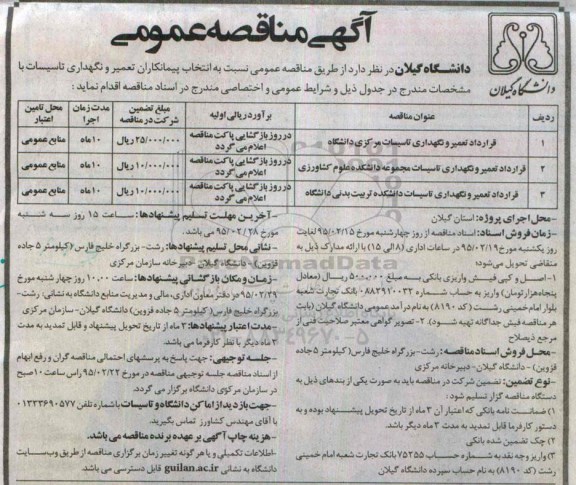 آگهی مناقصه عمومی
دانشگاه گیلان
دانشگاه گیلان در نظر دارد از طریق مناقصه عمومی نسبت به انتخاب پیمانکاران تعمیر و نگهداری تاسیسات با
مشخصات مندرج در جدول ذیل و شرایط عمومی و اختصاصی مندرج در اسناد مناقصه اقدام نماید:
ردیف عنوان مناقصه برآورد ریالی اولیه مبلغ تضمین شرکت در مناقصه مدت زمان اجرا محل تامین اعتبار
۱ قرارداد تعمیر و نگهداری تاسیسات مرکزی دانشگاه در روز بازگشایی پاکت مناقصه اعلام می گردد ۲۵/۰۰۰/۰۰۰ ریال ۱۰ ماه منابع عمومی
۲ قرارداد تعمیر و نگهداری تاسیسات مجموعه دانشکده علوم کشاورزی در روز بازگشایی پاکت مناقصه اعلام می گردد ۱۰/۰۰۰/۰۰۰ ریال ۱۰ ماه منابع عمومی
۳ قرارداد تعمیر و نگهداری تاسیسات دانشکده تربیت بدنی دانشگاه در روز بازگشایی پاکت مناقصه اعلام می گردد ۱۰/۰۰۰/۰۰۰ ریال ۱۰ ماه منابع عمومی
-محل اجرای پروژه: استان گیلان
-زمان فروش اسناد: اسناد مناقصه از روز چهارشنبه مورخ ۹۵/۰۲/۱۵ لغایت
روز یکشنبه مورخ ۹۵/۰۲/۱۹ در ساعات اداری (۸ الی ۱۵) با ارائه مدارک ذیل به
متقاضی تحویل می‌شود:
۱- اصل و کپی فیش واریزی بانکی به مبلغ ۵۰۰/۰۰۰ ریال (معادل
پنجاه هزار تومان) واریز به حساب شماره ۸۸۲۹۲۰۰۳۲ بانک تجارت شعبه
بلوار امام خمینی رشت (کد ۸۱۹۰) به نام درآمد عمومی دانشگاه گیلان (بابت
هر مناقصه فیش جداگانه تهیه شود). ۲- تصویر گواهی معتبر صلاحیت فنی از
مرجع ذیصلاح
-محل فروش اسناد مناقصه: رشت- بزرگراه خلیج فارس (کیلومتر ۵ جاده
قزوین) - دانشگاه گیلان- دبیرخانه مرکزی
-نوع تضمین: تضمین شرکت در مناقصه باید به صورت یکی از بندهای ذیل به
دستگاه مناقصه گزار تسلیم شود:
۱) ضمانت نامه بانکی که اعتبار آن ۳ ماه از تاریخ تحویل پیشنهاد بوده و به
دستور کارفرما قابل تمدید به مدت ۳ ماه دیگر باشد.
۲) چک تضمین شده بانکی
۳) واریز وجه نقد به شماره حساب ۷۵۲۵۵ بانک تجارت شعبه امام خمینی
رشت (کد ۸۱۹۰) به نام حساب سپرده دانشگاه گیلان
-آخرین مهلت تسلیم پیشنهادها: ساعت ۱۵ روز سه شنبه
مورخ ۹۵/۰۲/۲۸ می باشد.
-نشانی محل تسلیم پیشنهادها: رشت- بزرگراه خلیج فارس (کیلومتر ۵ جاده
قزوین)- دانشگاه گیلان- دبیرخانه سازمان مرکزی
-زمان و مکان بازگشائی پیشنهادها: ساعت ۱۰:۰۰ روز چهارشنبه مورخ
۹۵/۰۲/۲۹ در دفتر معاون اداری، مالی و مدیریت منابع دانشگاه به نشانی: رشت-
بزرگراه خلیج فارس (کیلومتر ۵ جاده قزوین) دانشگاه گیلان- سازمان مرکزی
-مدت اعتبار پیشنهادها: ۳ ماه از تاریخ تحویل پیشنهاد و قابل تمدید به مدت
۳ ماه دیگر با نظر کارفرما می باشد.
-جلسه توجیهی: جهت پاسخ به پرسشهای احتمالی مناقصه گران و رفع ابهام
از اسناد مناقصه جلسه توجیهی مناقصه در مورخ ۹۵/۰۲/۲۲ راس ساعت ۱۰ صبح
در سازمان مرکزی دانشگاه برگزار می گردد.
-جهت بازدید از اماکن دانشگاه و تاسیسات با شماره تلفن ۰۱۳۳۳۶۹۰۵۷۷
با آقای مهندس کشاورز تماس بگیرید.
-هزینه چاپ آگهی بر عهده برنده مناقصه می باشد.
-اطلاعات تکمیلی و یا هر گونه تغییر زمان برگزاری مناقصه از طریق وب سایت
دانشگاه به نشانی guilan.ac.ir قابل دسترسی می باشد.
ParsNamadData